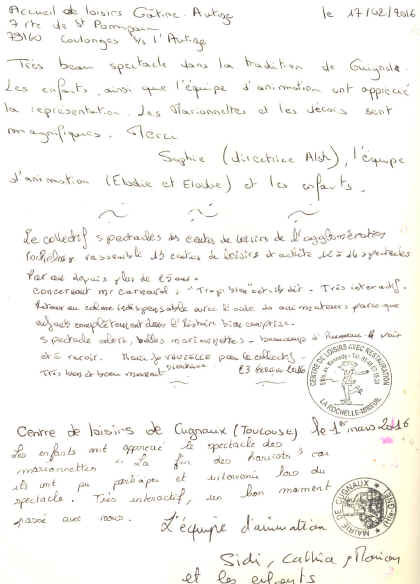 Accueil de loisirs Gâtine-Autize le 17/02/2016
7 rte de St Pompain
79160 Coulonges s/s l'Autize
Très beau spectacle dans la tradition de Guignol.
Les enfants, ainsi que l'équipe d'animation ont apprécié
la représentation. Les Marionnettes et les décors sont
magnifiques. Merci
Sophie (directrice Alsh), l'équipe
d'animation (Elodie et Elodie) et les enfants.
Le collectif spectacles des centres de loisirs de l'agglomération
Rochelaise rassemble 15 centres de loisirs et achète 12 à 16 spectacles
Par an depuis plus de 15 ans.
concernant mr carnaval, "Trop bien" ont-ils dit. Très interactif.
Retour au calme indispensable avec l'aide des animateurs parce que
enfants complètement dans l'histoire bien comprise.
Spectacle adoré, belles marionnettes - beaucoup d'humour à voir
et à revoir. pour le collectif -
Très bien et beau moment
CENTRE DE LOISIRS AVEC RESTAURATION
LA ROCHELLE-MIREUIL
Centre de loisirs de Cugnaux (Toulouse) le 1er mars 2016
Les enfants ont apprécié le spectacle des
marionnettes "La fin des haricots" car
ils ont pu participer et intervenir lors du
spectacle. Très interactif, un bon moment
passé avec vous.
MAIRIE CUGNAUX
L'équipe d'animation
Sidi, Cathia, Marion
et les enfants